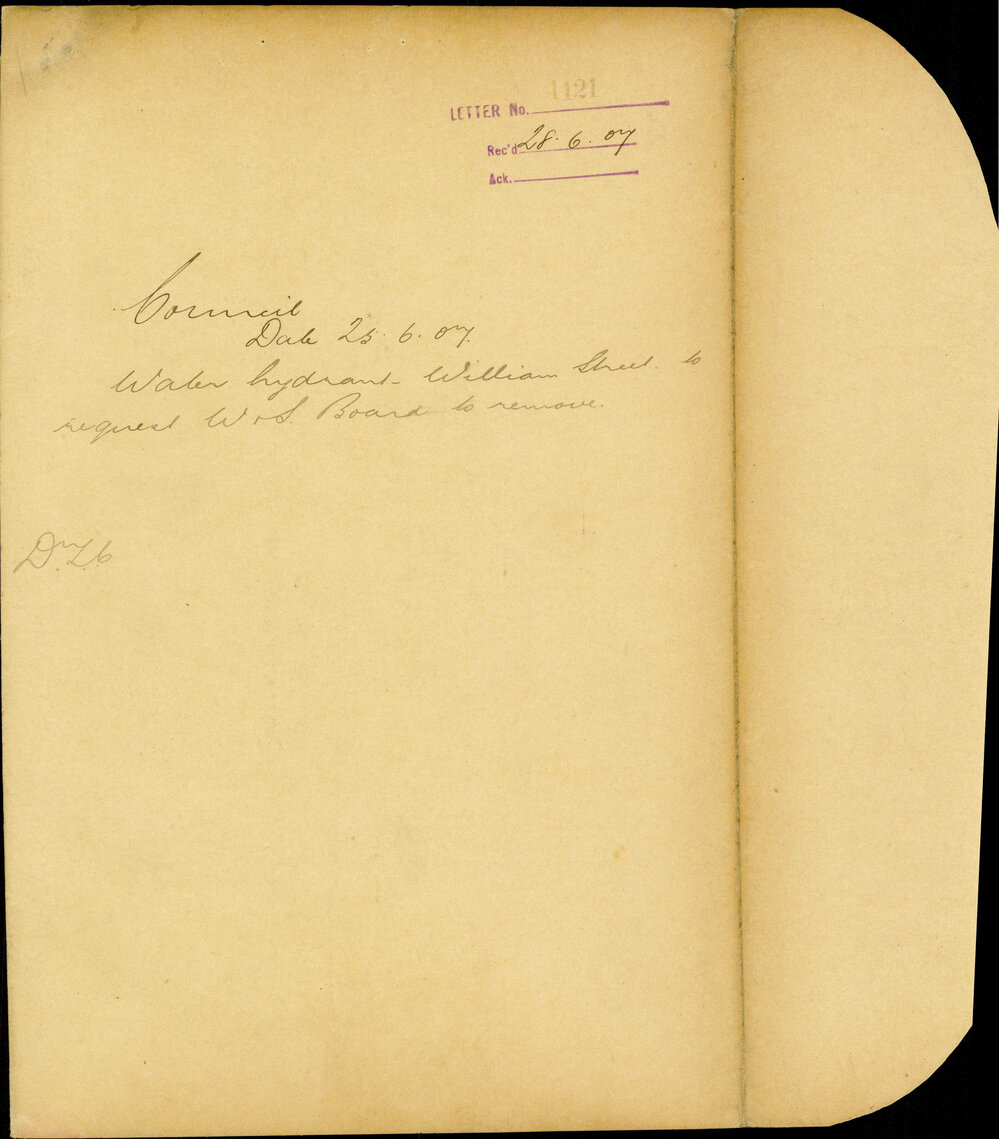 LETTER No. 1121
Rec'd 28.6.07
Ack.
Council
Date 25.6.07.
Water hydrant - William Street. to
request W & S. Board to remove.